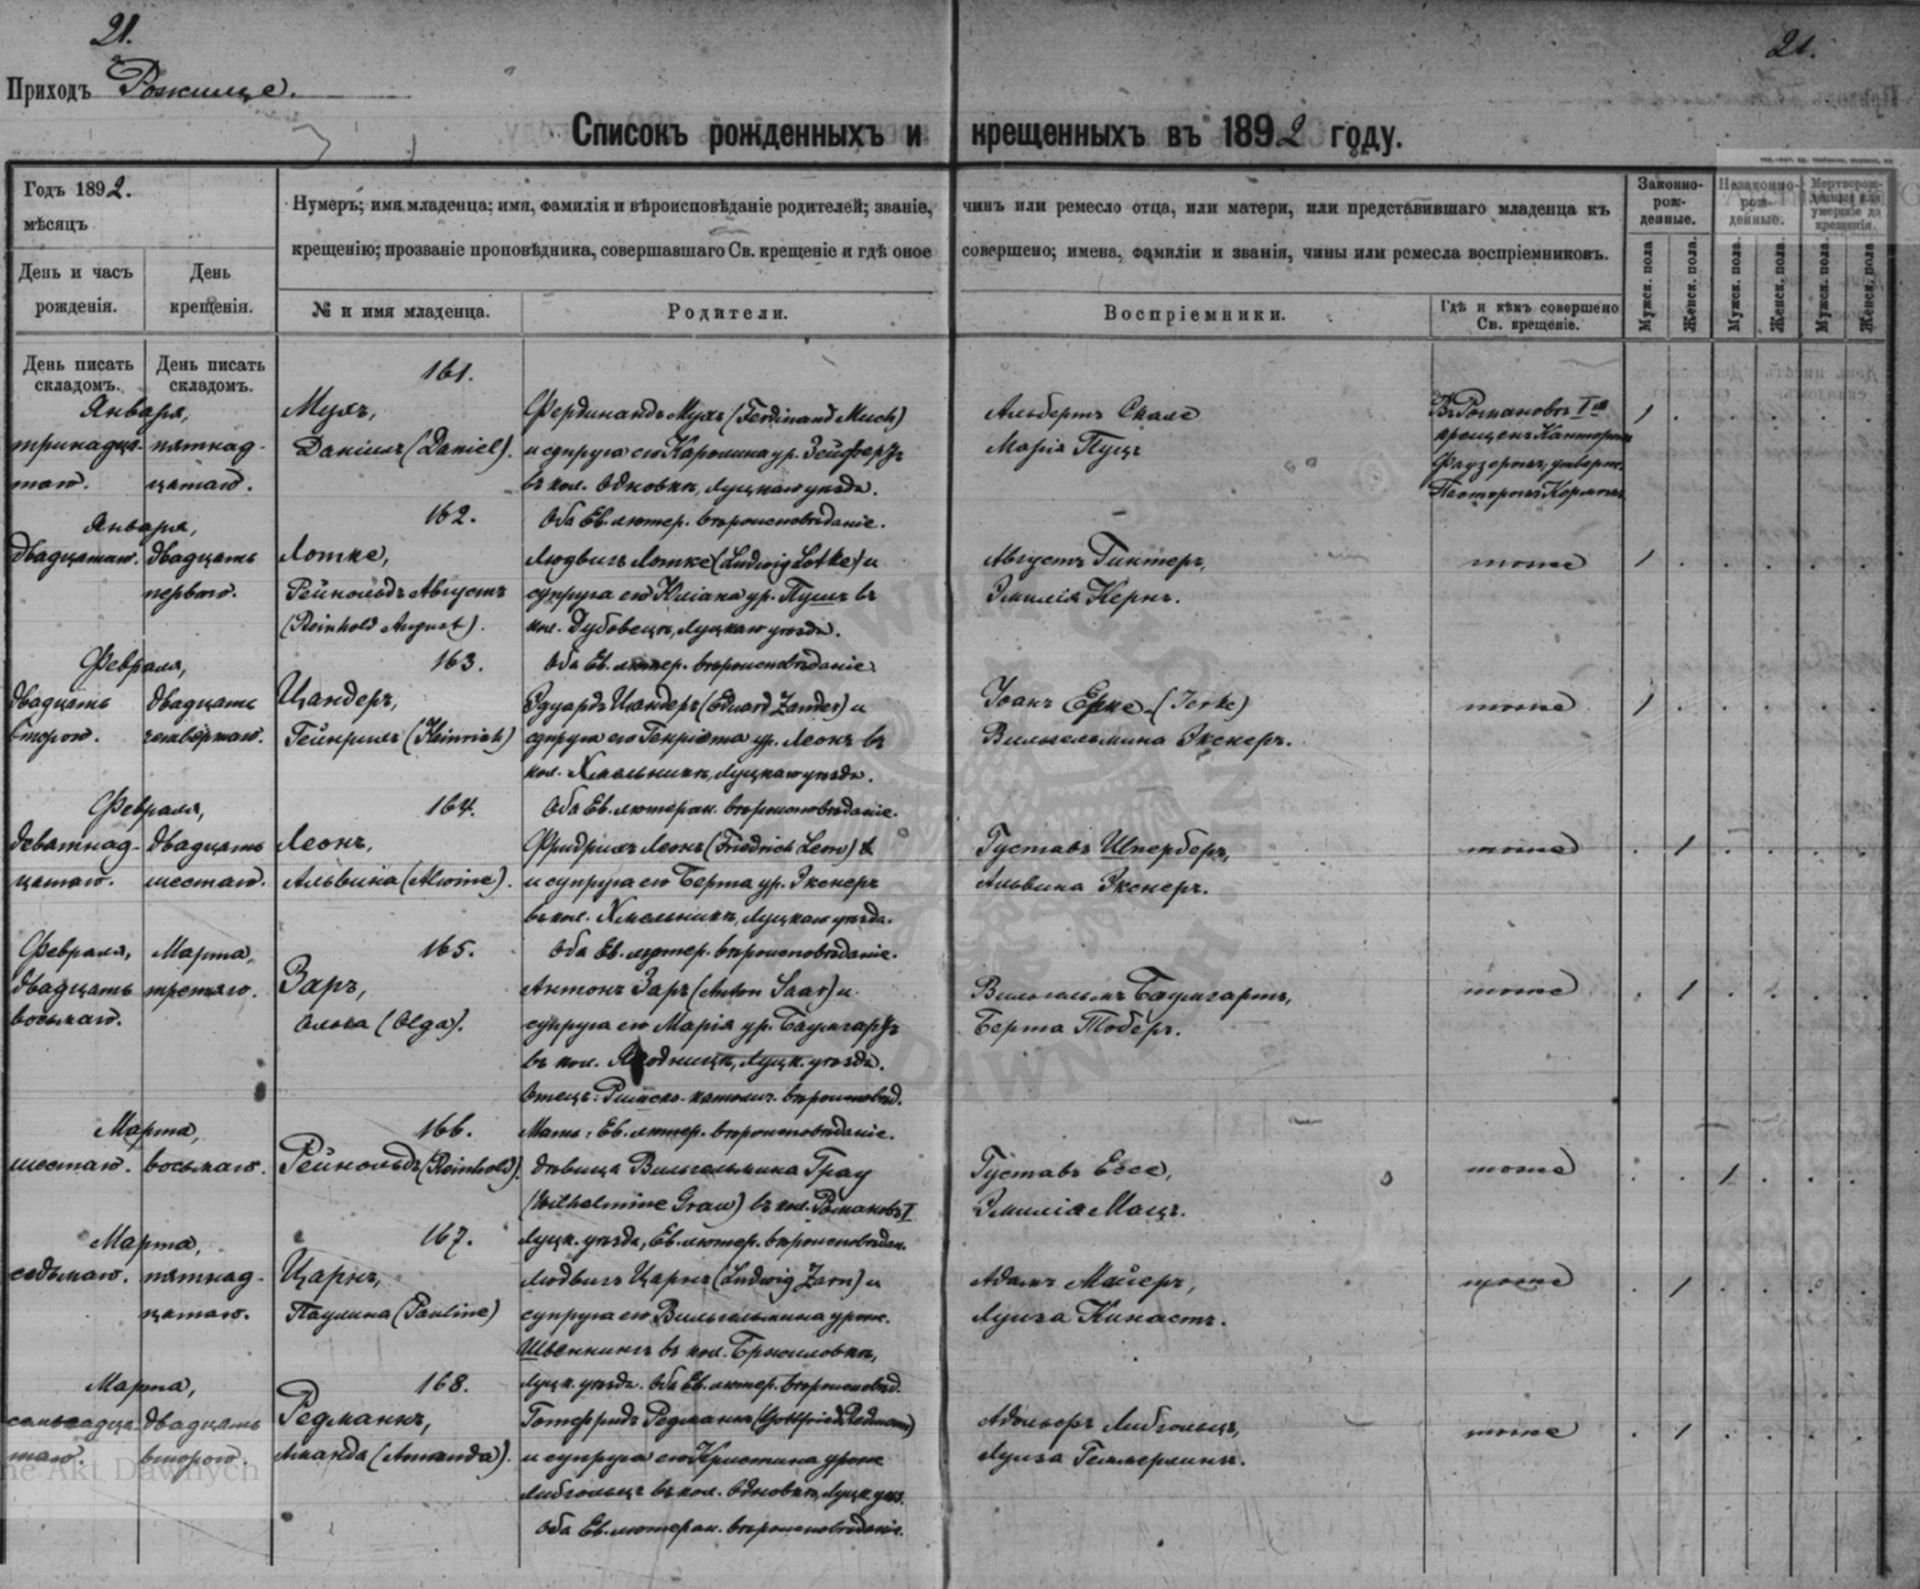 21.
21.
Приходъ Рожище.
Списокъ рожденныхъ и крещенныхъ въ 1892 году.
Годъ 1892.
мѣсяцъ
День и часъ рожденія.
День крещенія.
Нумеръ; имя младенца; имя, фамилія и вѣроисповѣданіе родителей; званіе, чинъ или ремесло отца, или матери, или представившаго младенца къ
крещенію; прозваніе проповѣдника, совершавшаго Св. крещеніе и гдѣ оное совершено; имена, фамиліи и званія, чины или ремесла воспріемниковъ.
№ и имя младенца.
Родители.
Воспріемники.
Гдѣ и кѣмъ совершено
Св. крещеніе.
Законно-
рож-
денные.
Незаконно-
рож-
денные.
Мертворож-
денные или
умершіе до
крещенія.
Мужск. пола
Женск. пола.
Мужск. пола.
Женск. пола.
Мужск. пола.
Женск. пола
День писать
складомъ.
День писать
складомъ.
161.
Января,
тринадца-
таго.
пятнад-
цатаго.
Мухъ,
Даніилъ (Daniel).
Фердинандъ Мухъ (Ferdinand Much)
и супруга его Каролина ур. Зейфертъ
въ кол. Одновкѣ, Луцкаго уѣзда.
Оба Ев. лютер. вѣроисповѣданіе.
Альбертъ Скале
Марія Пуцъ
Въ Романовѣ I
крещенъ Канторомъ
Фаузеромъ, утверж.
Пасторомъ Кермомъ
162.
Января,
двадцатаго.
двадцать
перваго.
Лотке,
Рейнольдъ Августъ
(Reinhold August).
Людвигъ Лотке (Ludwig Lotke) и
супруга его Юліана ур. Пушъ въ
кол. Дубовецъ, Луцкаго уѣзда.
Оба Ев. лютер. вѣроисповѣданіе.
Августъ Гинтеръ,
Эмилія Кернъ.
тоже
163.
Февраля,
двадцать
второго.
двадцать
четвертаго.
Цандеръ,
Гейнрихъ (Heinrich)
Эдуардъ Цандеръ (Eduard Zander) и
супруга его Генріета ур. Леонъ въ
кол. Хмельникѣ, Луцкаго уѣзда.
Оба Ев. лютеран. вѣроисповѣданіе.
Іоанъ Ерке (Jerke)
Вильгельмина Экснеръ.
тоже
164.
Февраля,
девятнад-
цатаго.
двадцать
шестаго.
Леонъ,
Альвина (Alwine).
Фридрихъ Леонъ (Friedrich Leon)
и супруга его Берта ур. Экснеръ
въ кол. Хмельникѣ, Луцкаго уѣзда.
Оба Ев. лютер. вѣроисповѣданіе.
Густавъ Шперберъ,
Альвина Экснеръ.
тоже
165.
Февраля,
двадцать
восьмаго.
Марта,
третяго.
Заръ,
Ольга (Olga).
Антонъ Заръ (Anton Saar) и
супруга его Марія ур. Баумгартъ
въ кол. Луцк. уѣзда.
Отецъ: Римско-католич. вѣроисповѣд.
Мать: Ев. лютер. вѣроисповѣданіе.
Вильгельмъ Баумгартъ,
Берта Тоберъ.
тоже
166.
Марта,
шестаго.
восьмаго.
Рейнольдъ (Reinhold).
дѣвица Вильгельмина Грау
(Wilhelmine Grau) въ кол. Романовъ I
Луцк. уѣзда, Ев. лютер. вѣроисповѣдан.
Густавъ Ессе,
Эмилія Мацъ.
тоже
167.
Марта,
седьмаго.
пятнад-
цатаго.
Царнъ,
Паулина (Pauline)
Людвигъ Царнъ (Ludwig Zarn) и
супруга его Вильгельмина урож.
Швеннингъ въ кол.
Луцк. уѣзда. Оба Ев. лютер. вѣроисповѣд.
Адамъ Майеръ,
Луиза Кинастъ.
тоже
168.
Марта,
двадцать
втораго.
Редманнъ,
Аманда (Amanda).
Готфридъ Редманнъ (Gottfried Redmann)
и супруга его Кристина урож
Либгольцъ въ кол. Одновкѣ, Луцк. уѣз.
Оба Ев. лютеран. вѣроисповѣданіе.
Адольфъ Либгольцъ,
Луиза Геммерлингъ.
тоже